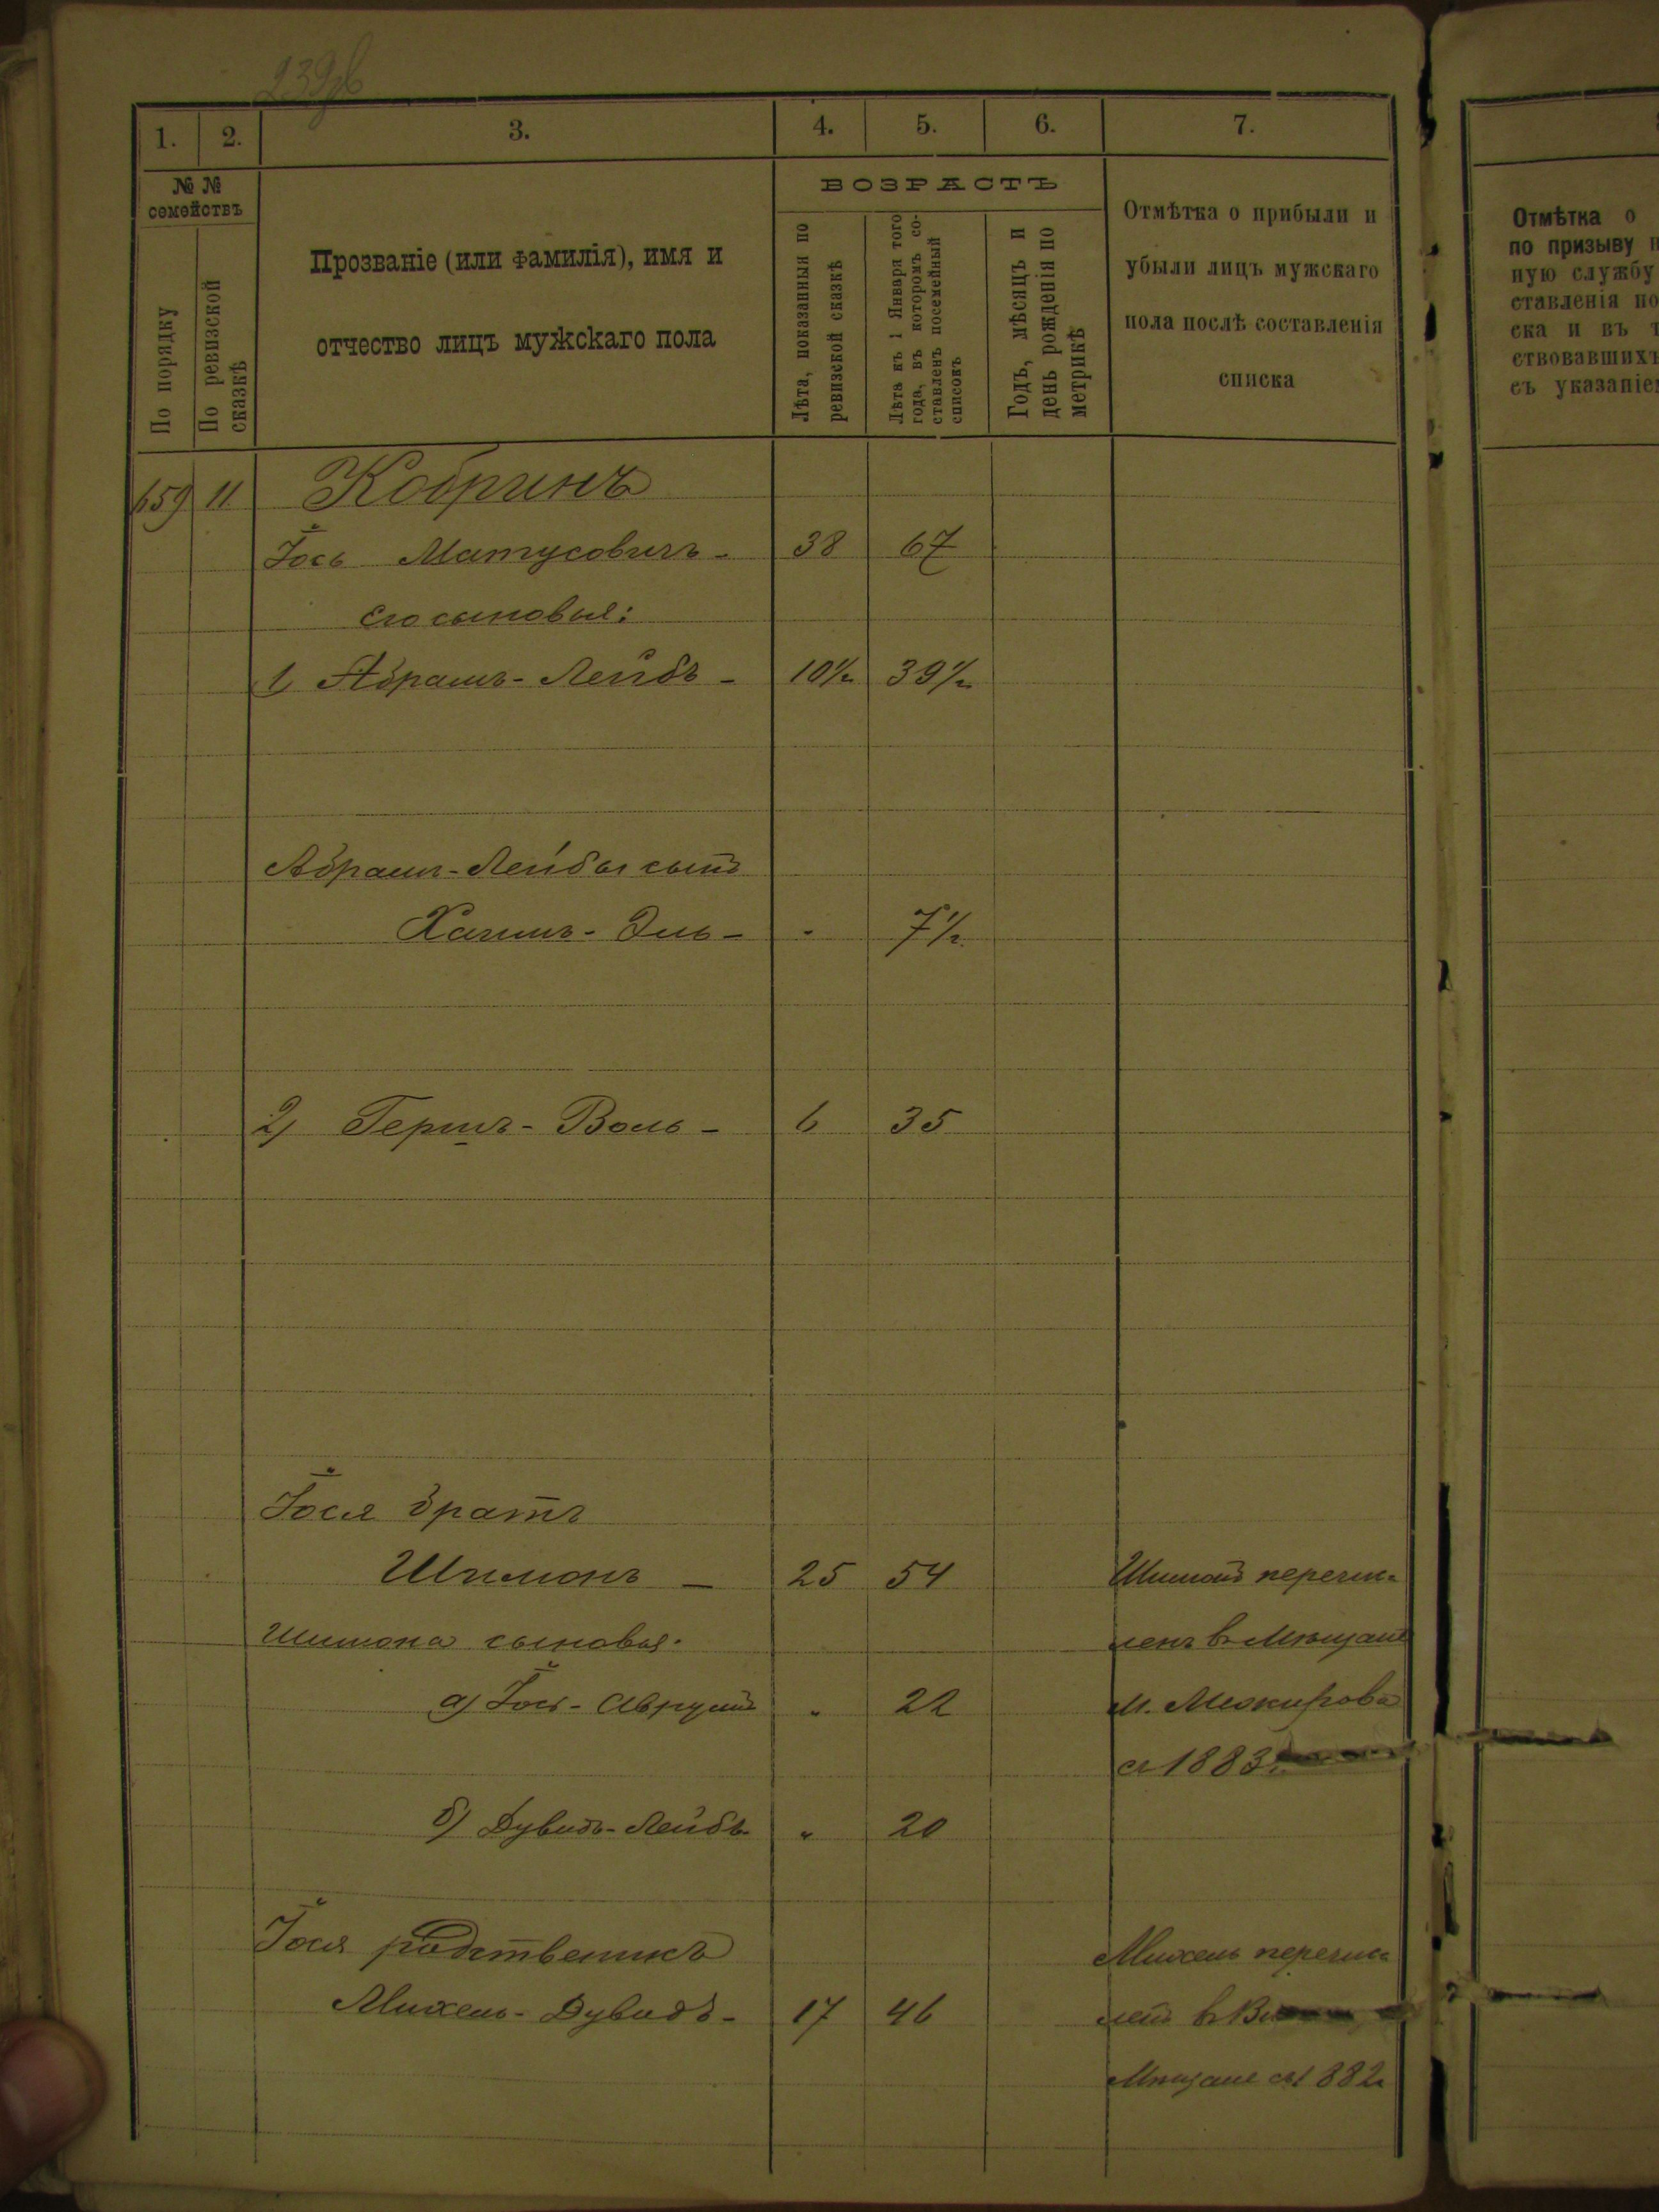 239об
1. 2. 3. 4. 5. 6. 7.
№ №
семействъ
По порядку
По ревизской
сказкѣ
Прозваніе (или фамилія), имя и
отчество лицъ мужскаго пола
ВОЗРАСТЪ
Лѣта, показанныя по
ревизской сказкѣ
Лѣта къ 1 Января того
года, въ которомъ со-
ставленъ посемейный
списокъ
Годъ, мѣсяцъ и
день рожденія по
метрикѣ
Отмѣтка о прибыли и
убыли лицъ мужскаго
пола послѣ составленія
списка
Отмѣтка о
по призыву
ную службу
ставленія по
ска и въ
ствовавшихъ
съ указаніе
659 11 Кобринъ
Іось Матусовичъ - 38 67
его сыновья:
1) Абрамъ-Лейбъ - 10½ 39½
Абрамъ-Лейбы сынъ
Хаимъ-Эль - " 7½
2) Гершъ-Воль - 6 35
Іося братъ
Шимонъ - 25 54 Шимонъ перечис-
Шимона сыновья: ленъ в Мѣщане
а) Іось-Аврумъ " 22 м.
съ 1883
б) Дувидъ-Лейбъ " 20
Іося родственикъ Михель перечис-
Михель-Дувидъ - 17 46 ленъ в
Мѣщане съ 1882г